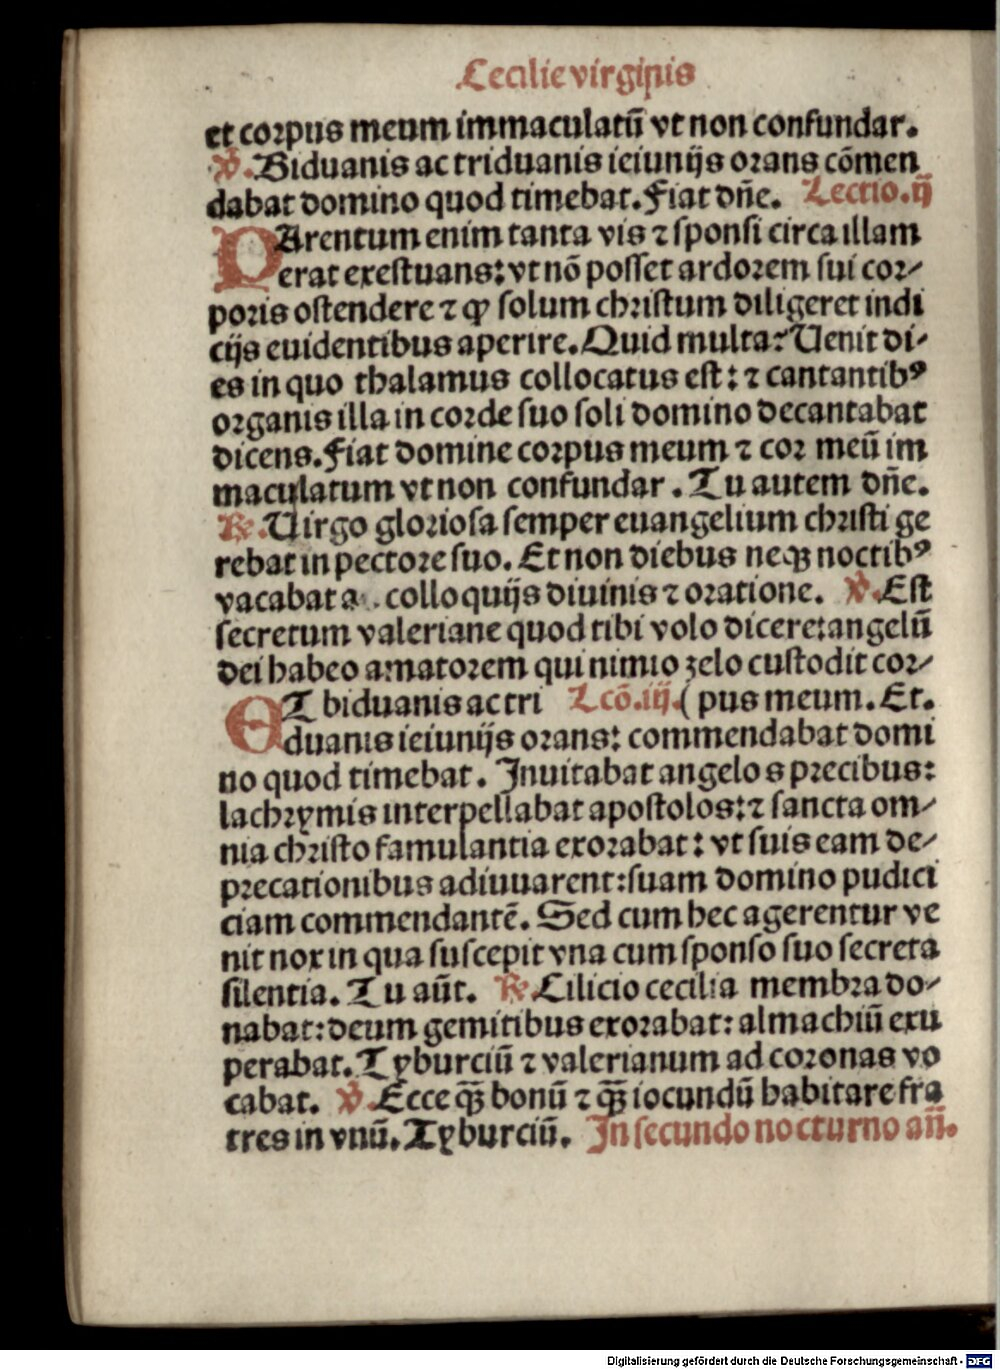 Cecilie virginis
et corpus meum immaculatū vt non confundar.
℣. Biduanis ac triduanis ieiunijs orans cōmen
dabat domino quod timebat. Fiat dn̄e. Lectio. ij
PArentum enim tanta vis ⁊ sponsi circa illam
erat exestuans: vt nō posset ardorem sui cor-
poris ostendere ⁊ ꝙ solum christum diligeret indi
cijs euidentibus aperire. Quid multa? Uenit di-
es in quo thalamus collocatus est: ⁊ cantantibꝰ
organis illa in corde suo soli domino decantabat
dicens. Fiat domine corpus meum ⁊ cor meū im
maculatum vt non confundar. Tu autem dn̄e.
℟. Uirgo gloriosa semper euangelium christi ge
rebat in pectore suo. Et non diebus neqꝫ noctibꝰ
vacabat a colloquijs diuinis ⁊ oratione. ℣. Est
secretum valeriane quod tibi volo dicere: angelū
dei habeo amatorem qui nimio zelo custodit cor-
ET biduanis ac tri Lcō. iij. ( pus meum. Et.
duanis ieiunijs orans: commendabat domi
no quod timebat. Inuitabat angelos precibus:
lachrymis interpellabat apostolos: ⁊ sancta om-
nia christo famulantia exorabat: vt suis eam de-
precationibus adiuuarent: suam domino pudici
ciam commendantē. Sed cum hec agerentur ve
nit nox in qua suscepit vna cum sponso suo secreta
silentia. Tu aūt. ℟. Cilicio cecilia membra do-
nabat: deum gemitibus exorabat: almachiū exu
perabat. Tyburciū ⁊ valerianum ad coronas vo
cabat. ℣. Ecce qꝫ̄ bonū ⁊ qꝫ̄ iocundū habitare fra
tres in vnū. Tyburciū. In secundo nocturno an̄.
Digitalisierung gefördert durch die Deutsche Forschungsgemeinschaft - DFG